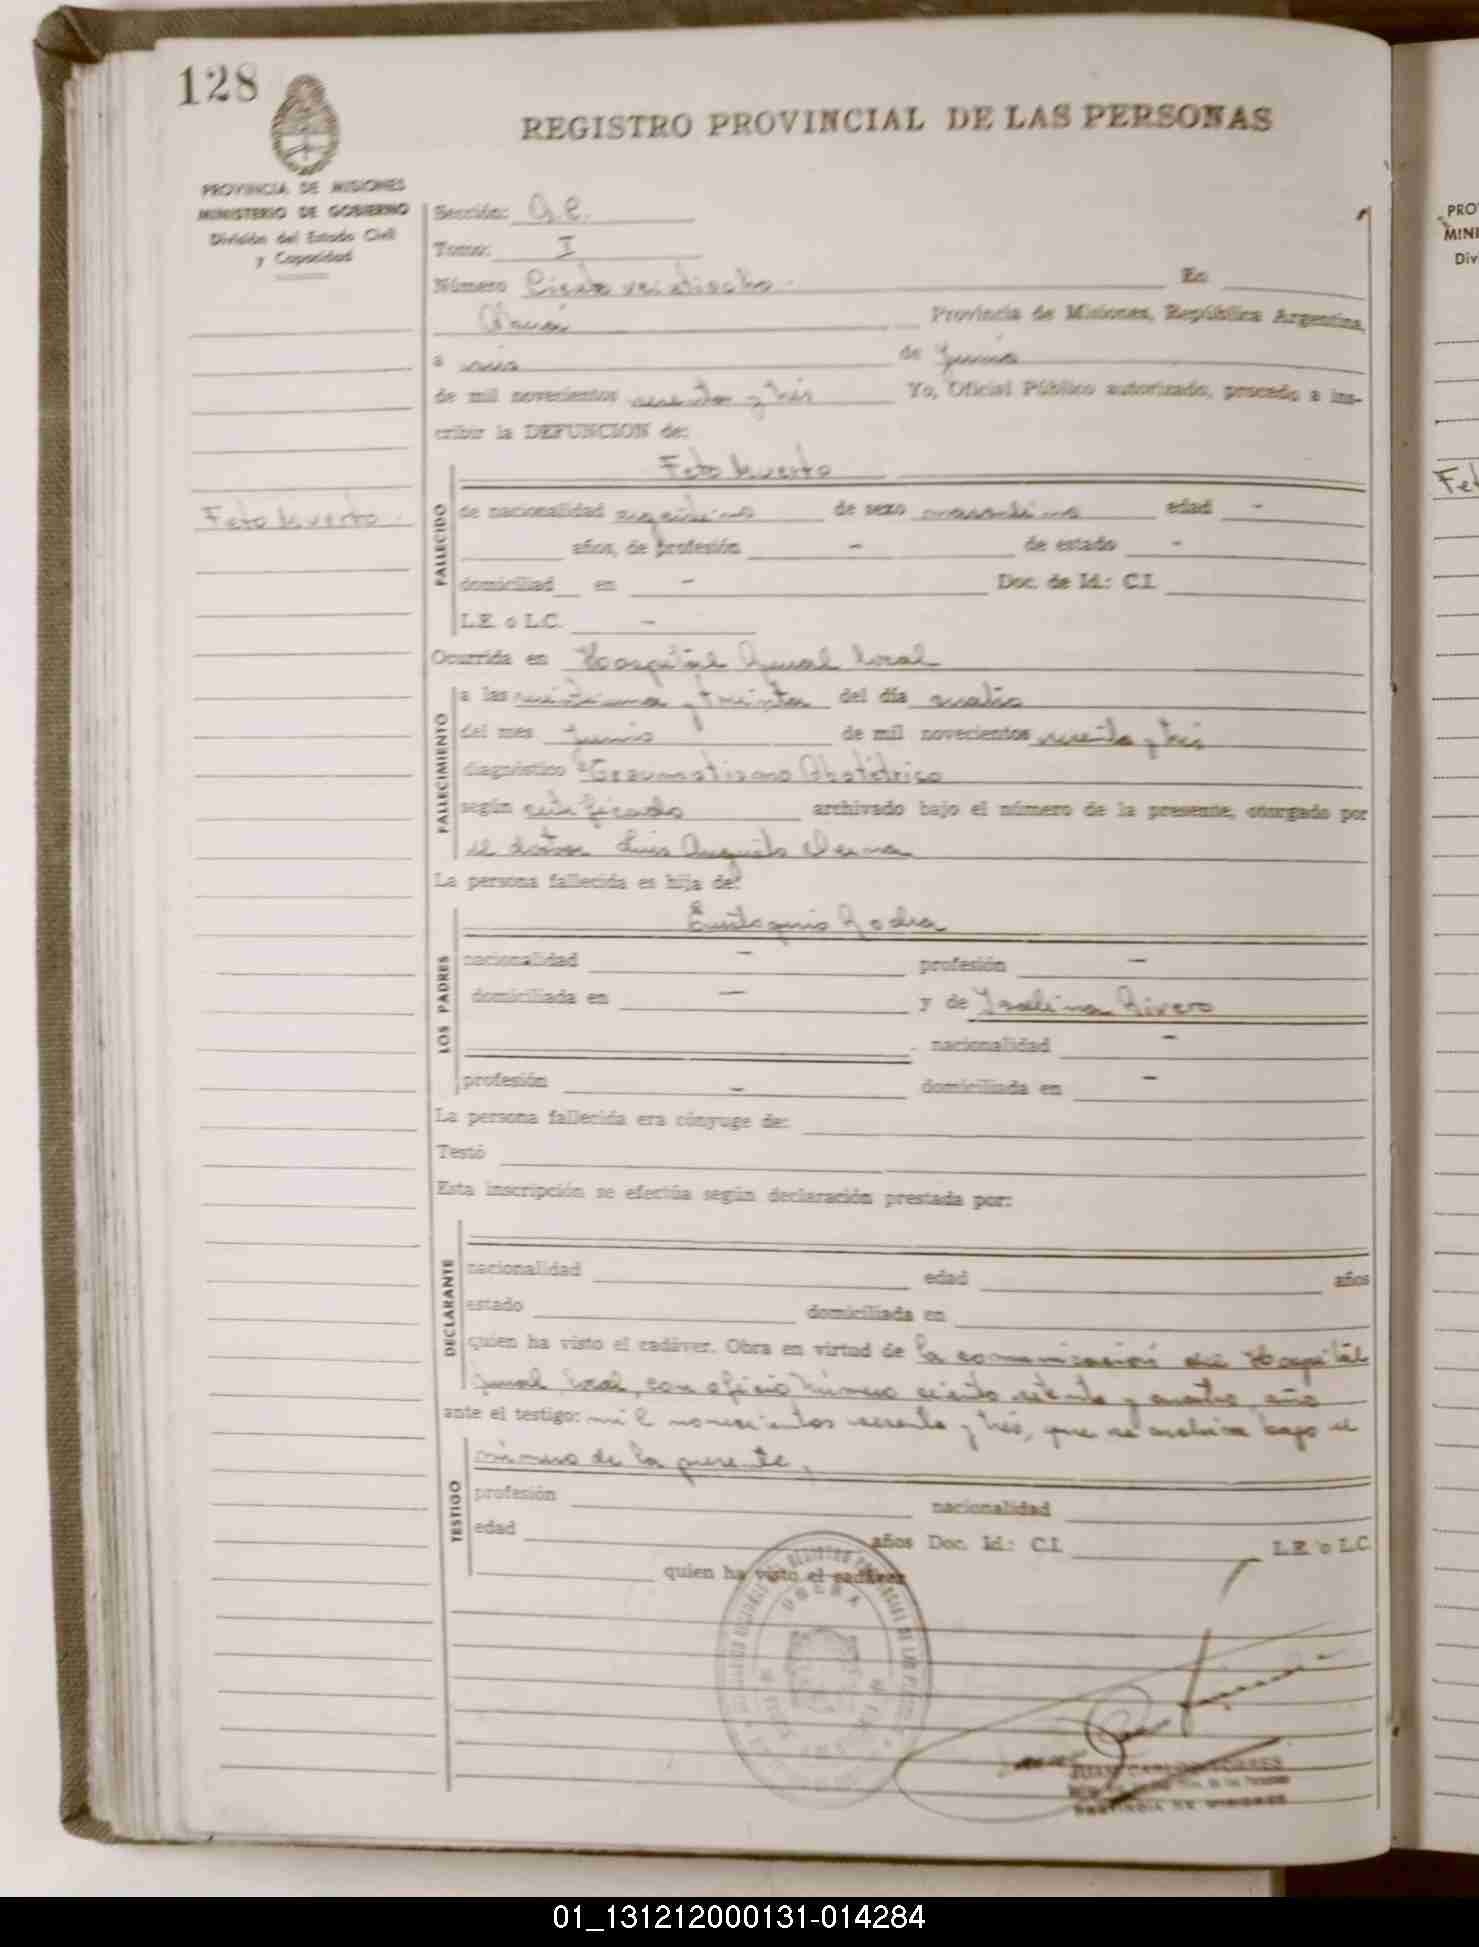 128
REGISTRO PROVINCIAL DE LAS PERSONAS
PROVINCIA DE MISIONES
MINISTERIO DE GOBIERNO
División del Estado Civil
y Capacidad
Sección:
Tomo: I
Número Ciento veintiocho - En
Oberá Provincia de Misiones, República Argentina,
a seis de Junio
de mil novecientos sesenta y tres Yo, Oficial Público autorizado, procedo a ins-
cribir la DEFUNCION de:
Feto Muerto
Feto Muerto -
FALLECIDO
de nacionalidad argentina de sexo masculino edad -
años, de profesión - de estado -
domiciliad en - Doc. de Id.: C.I.
L.E. o L.C. -
Ocurrida en Hospital Rural local
FALLECIMIENTO
a las veintiuna y treinta del día cuatro
del mes Junio de mil novecientos sesenta y tres
diagnóstico Obstétrico
según certificado archivado bajo el número de la presente, otorgado por
el doctor Luis Augusto
La persona fallecida es hija de:
LOS PADRES
Eustoquio
nacionalidad - profesión -
domiciliada en - y de Isolina Rivero
nacionalidad -
profesión - domiciliada en -
La persona fallecida era cónyuge de:
Testó
Esta inscripción se efectúa según declaración prestada por:
DECLARANTE
nacionalidad edad años
estado domiciliada en
quien ha visto el cadáver. Obra en virtud de la comunicación del Hospital
Rural local, con oficio número ciento setenta y cuatro, año
ante el testigo: mil novecientos sesenta y tres, que se archiva bajo el
número de la presente,
TESTIGO
profesión nacionalidad
edad años Doc. Id.: C.I. L.E. o L.C.
quien ha visto el cadáver
OBERA
JUAN CARLOS TORRES
PROVINCIA DE MISIONES
PRO
MINI
Div
Fet
01_131212000131-014284